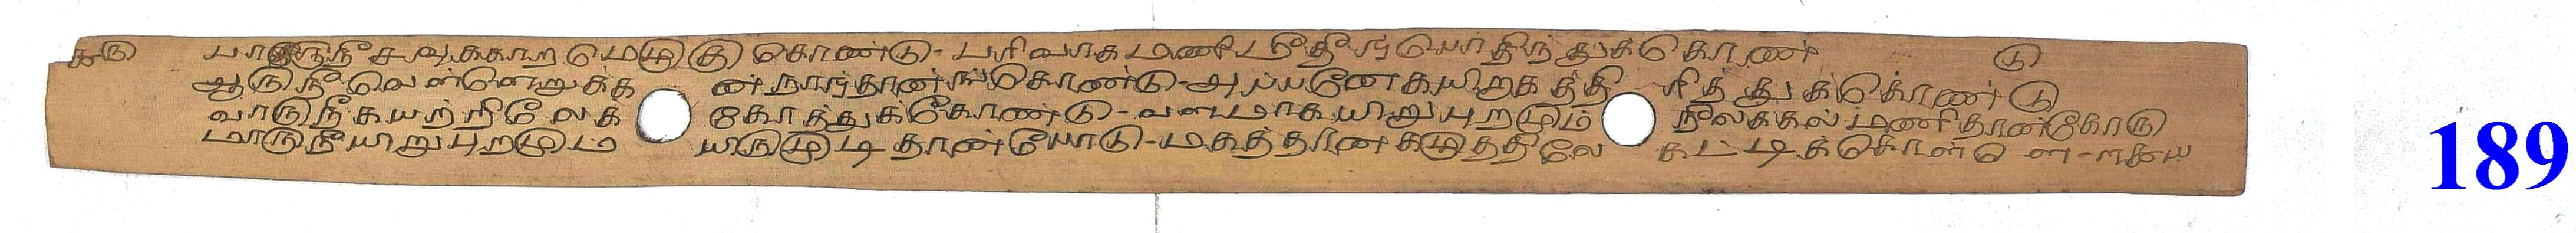 கூரு பாருநீ சவுக்காற மெழுகு கொண்டு - பரிவாக மணி யொதிந் துக்கொண் டு
ஆருநீ வெள்ளெறுக்க ன் நார்தான் கொண்டு - அப்பனே கயிறகத்தி ரித் துக் கொண்டு
வாருநீ கயற்றிலே க் கோத்துக்கோண்டு - வளமாக யிறுபுறமும் நீலக்கல் மணிதான்கோரு
மாருநீ யிறுபுறமும் யிருமுடி தான்போடு - மகத்தான கழுத்திலே கட்டிக்கொள்ளெ - ளகய
189